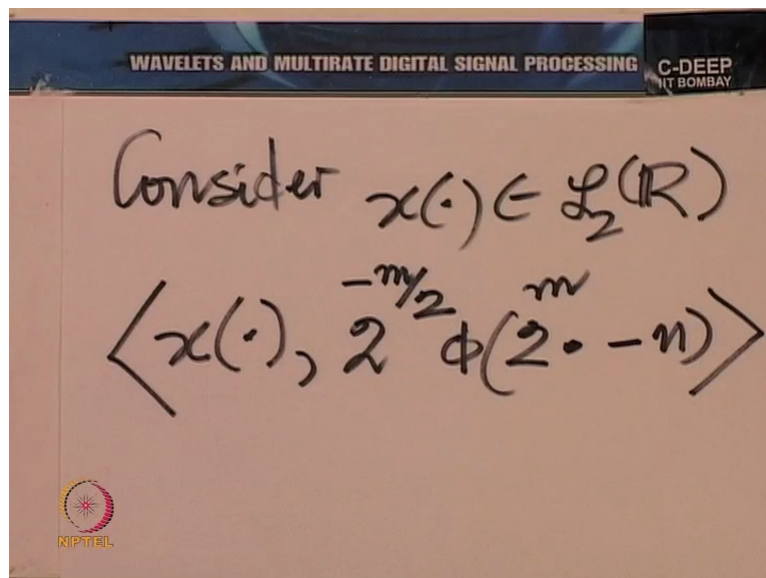 WAVELETS AND MULTIRATE DIGITAL SIGNAL PROCESSING
C-DEEP
IIT BOMBAY
Consider x(·) ∈ ℒ₂(ℝ)
⟨x(·), 2^{-m/2} φ(2^m · - n)⟩
NPTEL